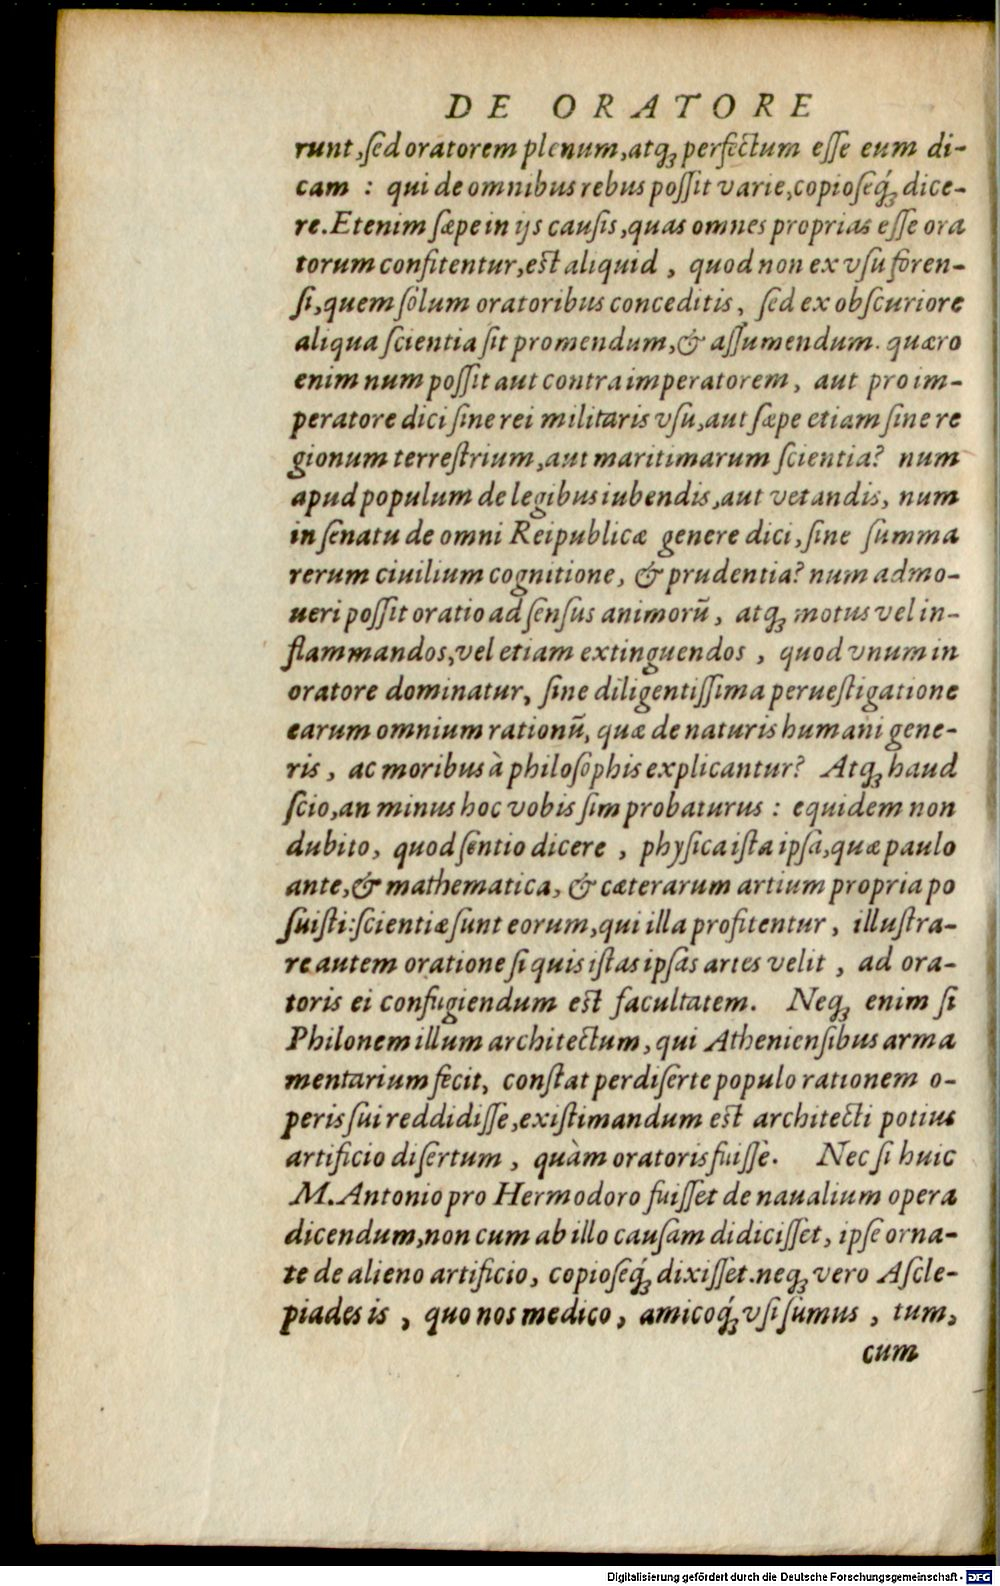 DE ORATORE
runt, ſed oratorem plenum, atqꝫ perfectum eſſe eum di-
cam : qui de omnibus rebus poſſit varie, copioſeq́ꝫ dice-
re. Etenim ſæpe in ijs cauſis, quas omnes proprias eſſe ora
torum confitentur, est aliquid , quod non ex vſu foren-
ſi, quem ſolum oratoribus conceditis, ſed ex obſcuriore
aliqua ſcientia ſit promendum, & aſſumendum. quæro
enim num poſſit aut contra imperatorem, aut pro im-
peratore dici ſine rei militaris vſu, aut ſæpe etiam ſine re
gionum terreſtrium, aut maritimarum ſcientia? num
apud populum de legibus iubendis, aut vetandis, num
in ſenatu de omni Reipublicæ genere dici, ſine ſumma
rerum ciuilium cognitione, & prudentia? num admo-
ueri poſſit oratio ad ſenſus animorũ, atqꝫ motus vel in-
flammandos, vel etiam extinguendos , quod vnum in
oratore dominatur, ſine diligentiſſima perueſtigatione
earum omnium rationũ, quæ de naturis humani gene-
ris, ac moribus à philoſophis explicantur? Atqꝫ haud
ſcio, an minus hoc vobis ſim probaturus : equidem non
dubito, quod ſentio dicere , phyſica iſta ipſa, quæ paulo
ante, & mathematica, & cæterarum artium propria po
ſuiſti: ſcientiæ ſunt eorum, qui illa profitentur, illuſtra-
re autem oratione ſi quis iſtas ipſas artes velit , ad ora-
toris ei confugiendum est facultatem. Neqꝫ enim ſi
Philonem illum architectum, qui Athenienſibus arma
mentarium fecit, conſtat perdiſerte populo rationem o-
peris ſui reddidiſſe, exiſtimandum est architecti potius
artificio diſertum , quàm oratoris fuiſſe. Nec ſi huic
M. Antonio pro Hermodoro fuiſſet de naualium opera
dicendum, non cum ab illo cauſam didiciſſet, ipſe orna-
te de alieno artificio, copioſeq́ꝫ dixiſſet. neqꝫ vero Aſcle-
piades is , quo nos medico, amicoq́ꝫ vſi ſumus , tum,
cum
Digitalisierung gefördert durch die Deutsche Forschungsgemeinschaft - DFG